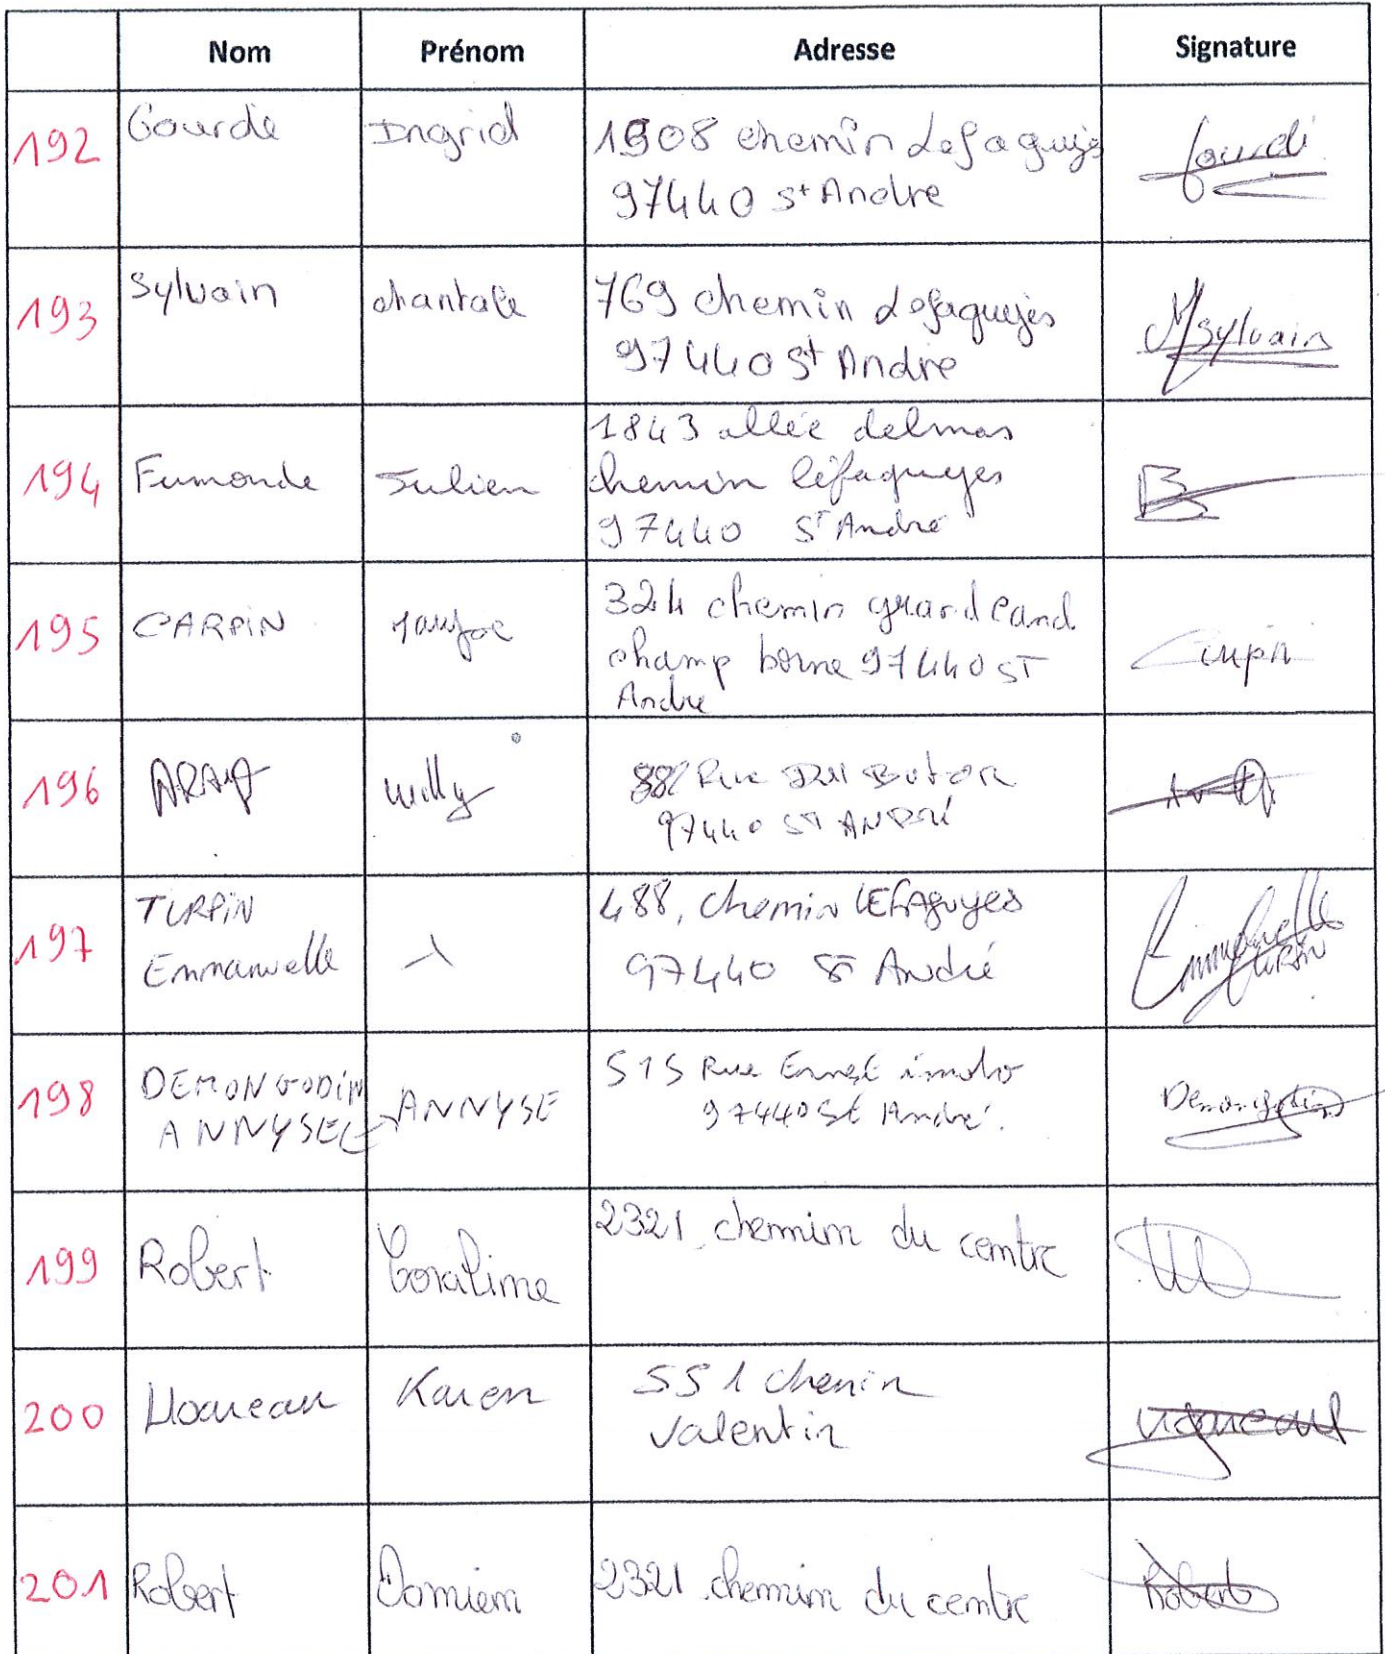 Nom Prénom Adresse Signature
192 Gourdé Ingrid 1908 chemin Lefaguyes
97440 St Andre
193 Sylvain chantale 769 chemin Lefaguyes
97440 St Andre Msylvain
194 Fumonde Julien 1843 allée delmas
chemin léfaguyes
97440 St André
195 CARPIN 324 chemin grand cand
champ borne 97440 ST
Andre
196 willy Rue Butor
97440 ST ANDRé
197 TURPIN
Emmanuelle 488, chemin LEFAguyes
97440 St André Emmanuelle
TURPIN
198 DEMONGODIN
ANNYSE ANNYSE 515 Rue Ernest
97440 St André.
199 Robert Coraline 2321 chemin du centre
200 Hoareau Karen 551 chemin
Valentin Hoareau
201 Robert Damien 2321 chemin du centre Robert